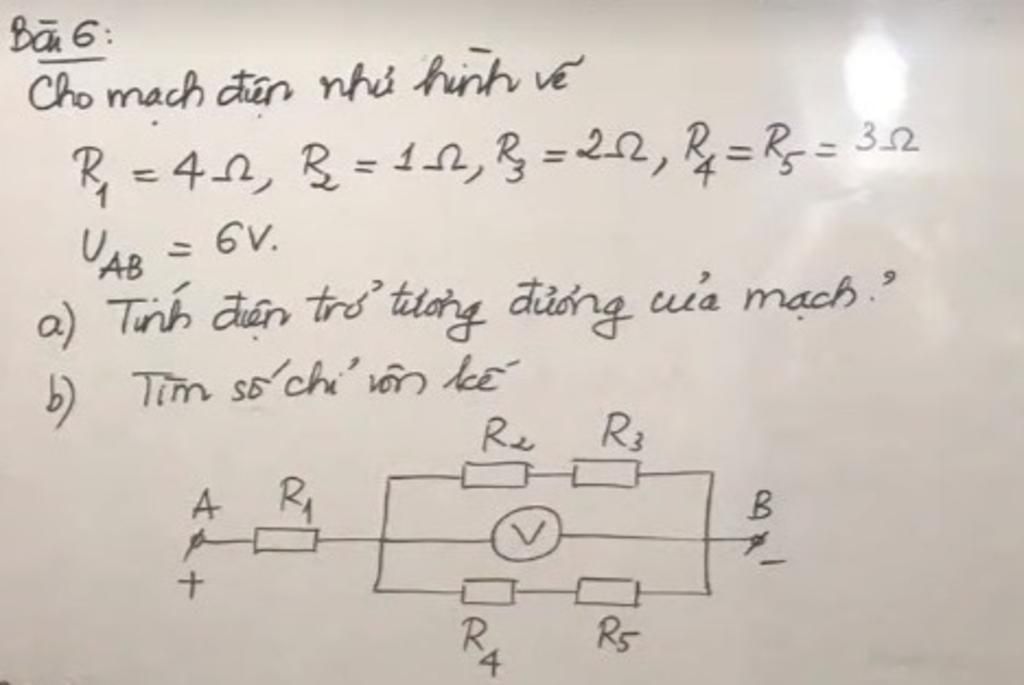 Bài 6:
Cho mạch điện như hình vẽ
R₁ = 4Ω, R₂ = 1Ω, R₃ = 2Ω, R₄ = R₅ = 3Ω
U_AB = 6V.
a) Tính điện trở tương đương của mạch?
b) Tìm số chỉ vôn kế
R₂ R₃
A R₁ V B
+ −
R₄ R₅